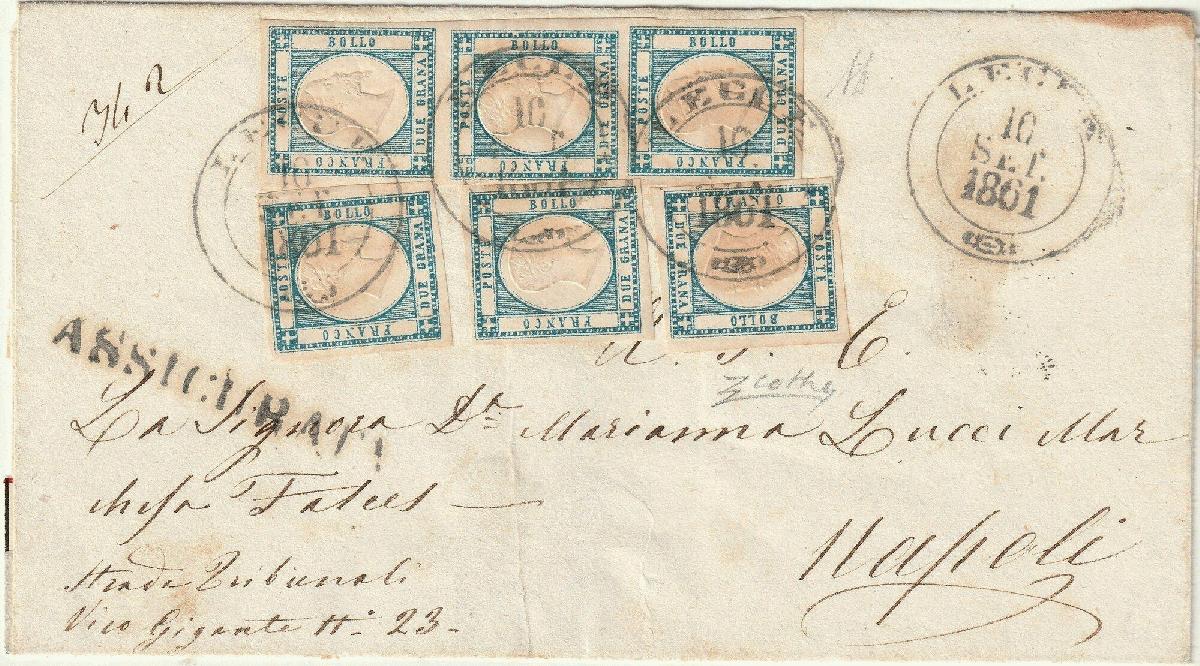 BOLLO BOLLO BOLLO
POSTE DUE GRANA POSTE DUE GRANA POSTE DUE GRANA
FRANCO FRANCO FRANCO
LECCE
16
SET.
1861
BOLLO BOLLO FRANCO
POSTE DUE GRANA POSTE DUE GRANA DUE GRANA POSTE
FRANCO FRANCO BOLLO
ASSICURATA
A. S. E.
La Signora Da Marianna Lucci Mar
chesa
Napoli
Strada Tribunali
Vico Gigante N. 23-